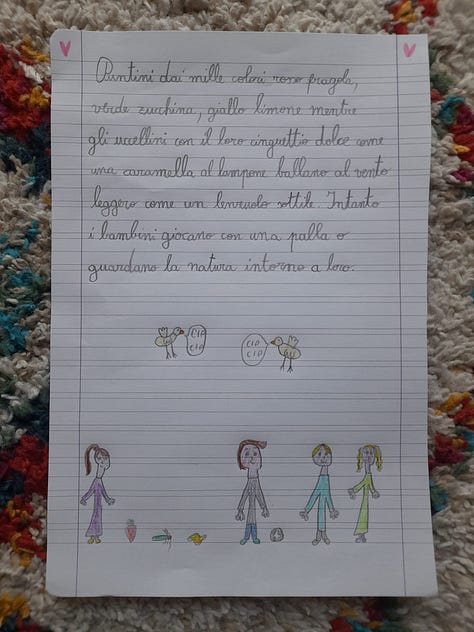 Puntini dai mille colori rosso fragola,
verde zucchina, giallo limone mentre
gli uccellini con il loro cinguettio dolce come
una caramella al lampone ballano al vento
leggero come un lenzuolo sottile. Intanto
i bambini giocano con una palla o
guardano la natura intorno a loro.
CIP
CIP
CIP
CIP